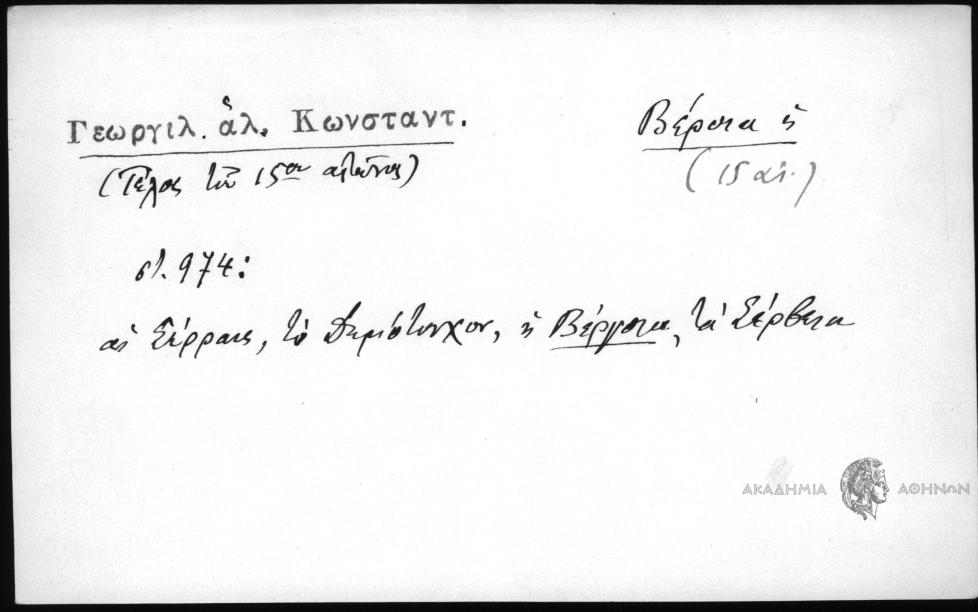 Γεωργιλ. ἁλ. Κωνσταντ.
Βέροια ἡ
(Τέλος τοῦ 15ου αἰῶνος)
(15 αἰ.)
στ. 974:
αἱ Σέρραις, τὸ Διμιότυχον, ἡ Βέρροια, τὰ Σέρβεια
ΑΚΑΔΗΜΙΑ ΑΘΗΝΩΝ